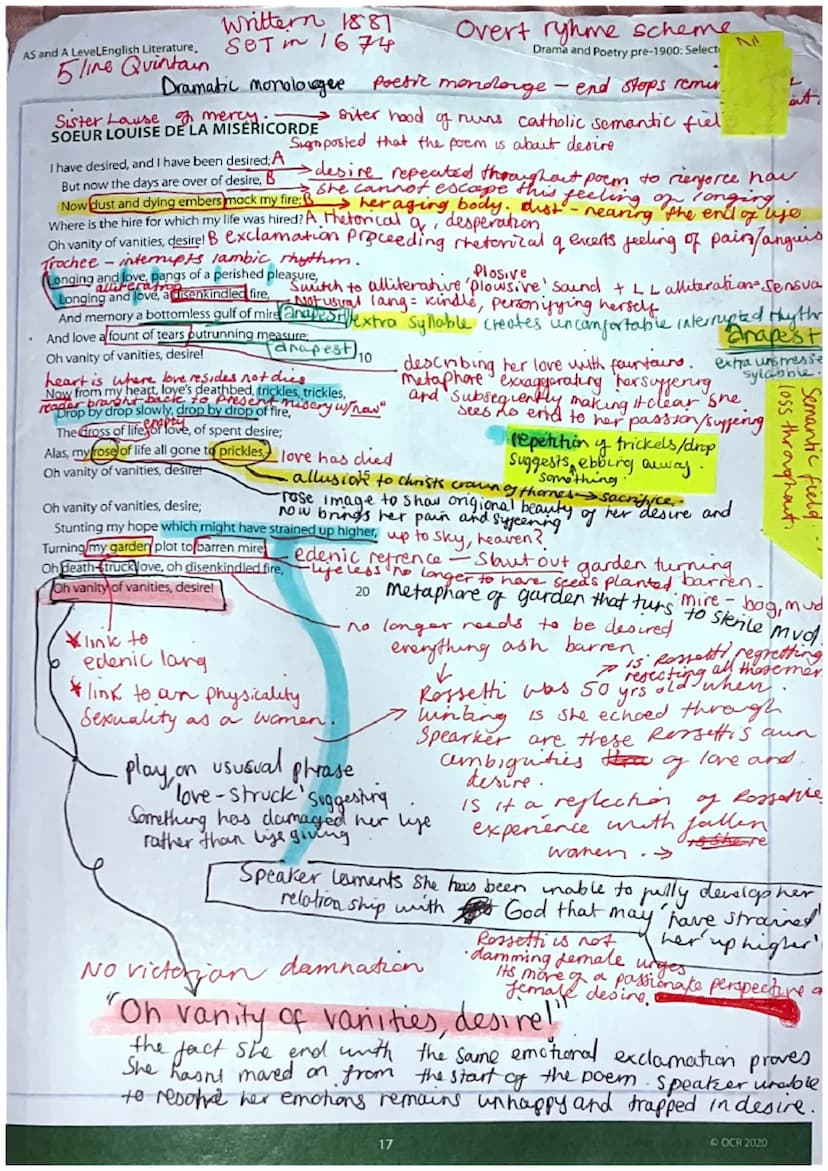 Writtern 1881
SET in 1674
Overt ryhme scheme
AS and A LeveL English Literature.
Drama and Poetry pre-1900: Select
5 line Quintain
Dramatic monologee
Poetic monolouge – end stops
Sister Lause of mercy. → siter hood of nuns catholic semantic
SOEUR LOUISE DE LA MISERICORDE
Signposted that the poem is about desire
I have desired, and I have been desired; A
→ desire repeated throughout poem to rienforce how
But now the days are over of desire, B
→ she cannot escape this feeling of longing.
Now dust and dying embers mock my fire; B → her aging body. dust – nearing the end of life
Where is the hire for which my life was hired? A. rhetorical q, desperation
Oh vanity of vanities, desire! B exclamation proceeding rhetorical q excerts feeling of pain/anguis
Trochee – interrupts iambic rhythm.
Longing and love, pangs of a perished pleasure,
Plosive
alliteration
Switch to alliterative 'plowsive' sound + L L alliteration = sensua
Longing and love, a disenkindled fire,
Not usual lang = kindle, personifying herself
And memory a bottomless gulf of mire, anapest
extra syllable creates uncomfortable interrupted rhythr
anapest
extra unstresse
syllabble.
And love a fount of tears outrunning measure;
anapest
Oh vanity of vanities, desire!
10
describing her love with fountains.
metaphore exxaggerating her suffering
and subsequently making it clear she
sees no end to her passion/suffering
heart is where love resides not dies
Now from my heart, love's deathbed, trickles, trickles,
reader braught back to present misery w/ "now"
Drop by drop slowly, drop by drop of fire,
empty
The dross of life, of love, of spent desire;
Alas, my rose of life all gone to prickles,
love has died
Oh vanity of vanities, desire!
allusion to christs crown of thornes → sacrifice.
repetition of trickels/drop
suggests ebbing away.
something.
Semantic field
loss throughout.
rose image to show origional beauty of her desire and
now brings her pain and suffering
Oh vanity of vanities, desire;
Stunting my hope which might have strained up higher,
up to sky, heaven?
Turning my garden plot to barren mire;
edenic refrence – Shut out garden turning
Oh death-struck love, oh disenkindled fire,
lifeless no longer to have seeds planted barren.
Oh vanity of vanities, desire!
20
Metaphore of garden that turs to sterile mud.
mire – bog, mud
no longer needs to be desired
everything ash barren
* link to
edenic lang
* link to an physicality
sexuality as a women.
→ is Rossetti regretting
rejecting all those men
Rossetti was 50 yrs old when
writing is she echoed through
Spearker are these Rossetti's own
ambiguities of love and
desire.
is it a reflection of Rossettis
experience with fallen
women. →
play on ususual phrase
'love-struck' suggesting
something has damaged her life
rather than life giving
Speaker laments she has been unable to fully develop her
relationship with God that may 'have strained
her 'up higher'
No victorian damnation
Rossetti is not
damming female urges
its more of a passionate perspective o
female desire.
"Oh vanity of vanities, desire!"
the fact she end with the same emotional exclamation proves
she hasnt moved on from the start of the poem. speaker unable
to resolve her emotions remains unhappy and trapped in desire.
17
© OCR 2020